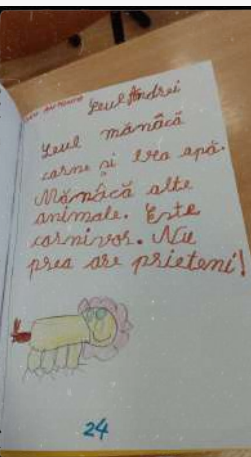 Leul Andrei
Leul mănâcă
carne și bea apă.
Mănâcă alte
animale. Este
carnivor. Nu
prea are prieteni!
24